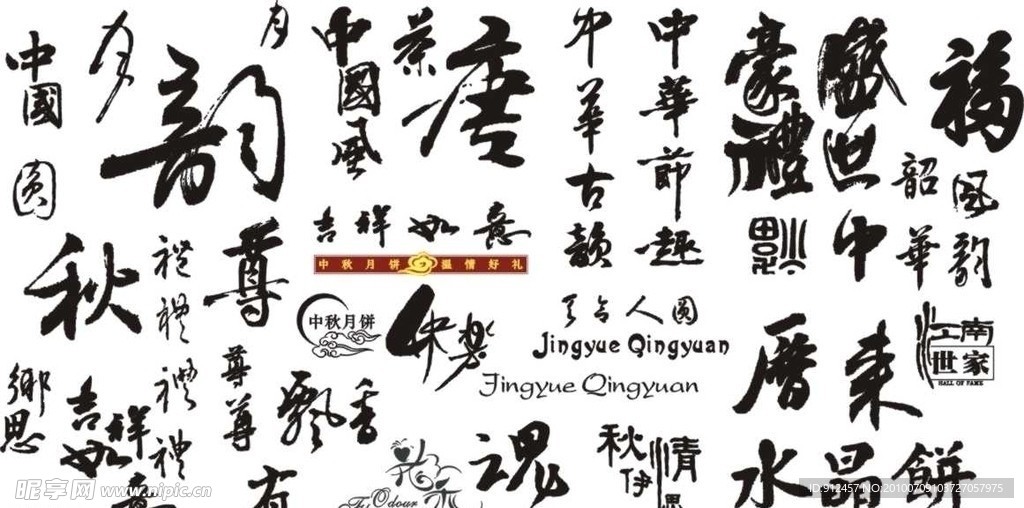 中國
月
韵
月
中國風
茶
唐
中華古韻
中華節趣
豪禮
盛世
福
圆
秋
禮
禮
禮
禮
尊
吉祥如意
中秋月饼 温情好礼
中秋月饼
中
韶華
风韵
人圆
Jingyue Qingyuan
Jingyue Qingyuan
江南
世家
HALL OF FAME
鄉思
吉祥如意
尊尊
飘香
有
魂
秋伊
情思
水晶餅
昵享网 www.nipic.cn
ID:912457 NO:20100709103727057975